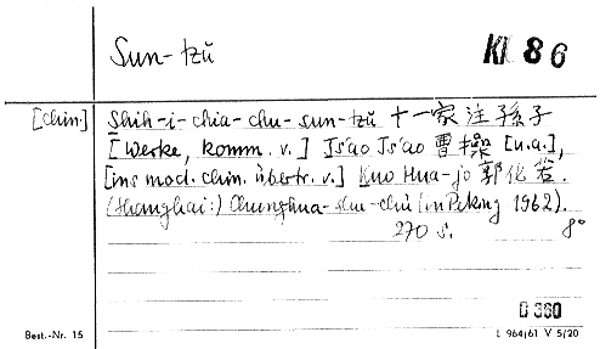 Sun-tzŭ
Kl 86
[chin.]
Shih-i-chia-chu-sun-tzŭ 十一家注孫子
[Werke, komm. v.] Ts'ao Ts'ao 曹操 [u.a.],
[ins mod. chin. übertr. v.] Kuo Hua-jo 郭化若.
(Shanghai:) Chunghua-shu-chü (in Peking 1962).
270 S. 8°
D 360
Best.-Nr. 15
L 964/61 V 5/20